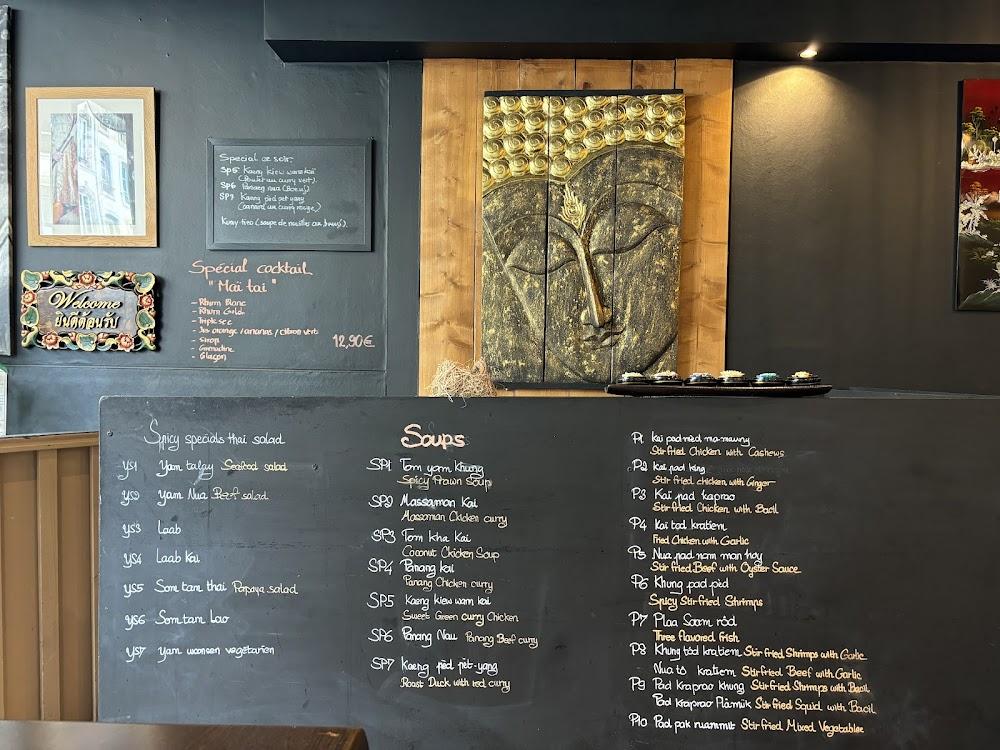 Special ce soir
SP5 Kaeng kiew wane kai
(Poulet au curry vert).
SP6 Panaeng nua (Boeuf)
SP7 Kaeng pèd pet yang
(canard au curry rouge).
Kuay-tieo (soupe de nouilles au boeuf).
Welcome
ยินดีต้อนรับ
Spécial cocktail
"Maï tai"
- Rhum Blanc
- Rhum Gold
- Triple sec
- Jus orange / ananas / citron vert
- Sirop
- Grenadine
- Glaçon
12,90€
Spicy specials thai salad
YS1 Yam talay Seafood salad
YS2 Yam Nua Beef salad
YS3 Laab
YS4 Laab Kai
YS5 Som tam thai Papaya salad
YS6 Som tam Lao
YS7 Yam woonsen vegetarien
Soups
SP1 Tom yam Khung
Spicy Prawn Soup
SP2 Massaman Kai
Massaman Chicken curry
SP3 Tom kha Kai
Coconut Chicken Soup
SP4 Panang kai
Panang Chicken curry
SP5 Kaeng kiew wam kai
Sweet Green curry Chicken
SP6 Panang Nau Panang Beef curry
SP7 Kaeng pèd pèt-yang
Roast Duck with red curry
P1 Kai pad mèd ma-muang
Stir fried Chicken with Cashews
P2 Kai pad king
Stir fried chicken with Ginger
P3 Kai pad kaprao
Stir fried Chicken with Basil
P4 Kai tod kratiem
Fried Chicken with Garlic
P5 Nua pad nam man hoy
Stir fried Beef with Oyster Sauce
P6 Khung pad pèd
Spicy Stir fried Shrimps
P7 Plaa Saam ród
Three flavored fish
P8 Khung tód kratiem Stir fried Shrimps with Garlic
Nua tó kratiem Stir fried Beef with Garlic
P9 Pad Kraprao Khung Stir fried Shrimps with Basil
Pad kraprao Plàmük Stir fried Squid with Basil
P10 Pad pak ruammit Stir fried Mixed Vegetables